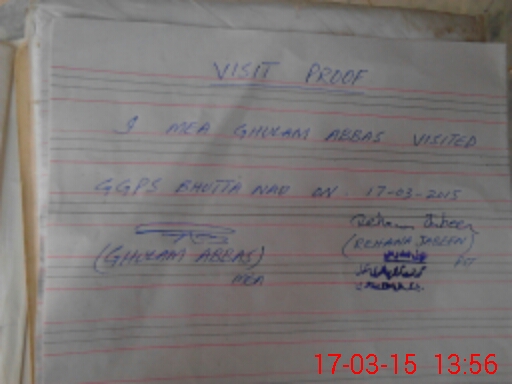 VISIT PROOF
I MEA GHULAM ABBAS VISITED
GGPS BHUTTA NAD ON. 17-03-2015
Rehana Jabeen
(GHULAM ABBAS) (REHANA JABEEN)
MEA
17-03-15 13:56